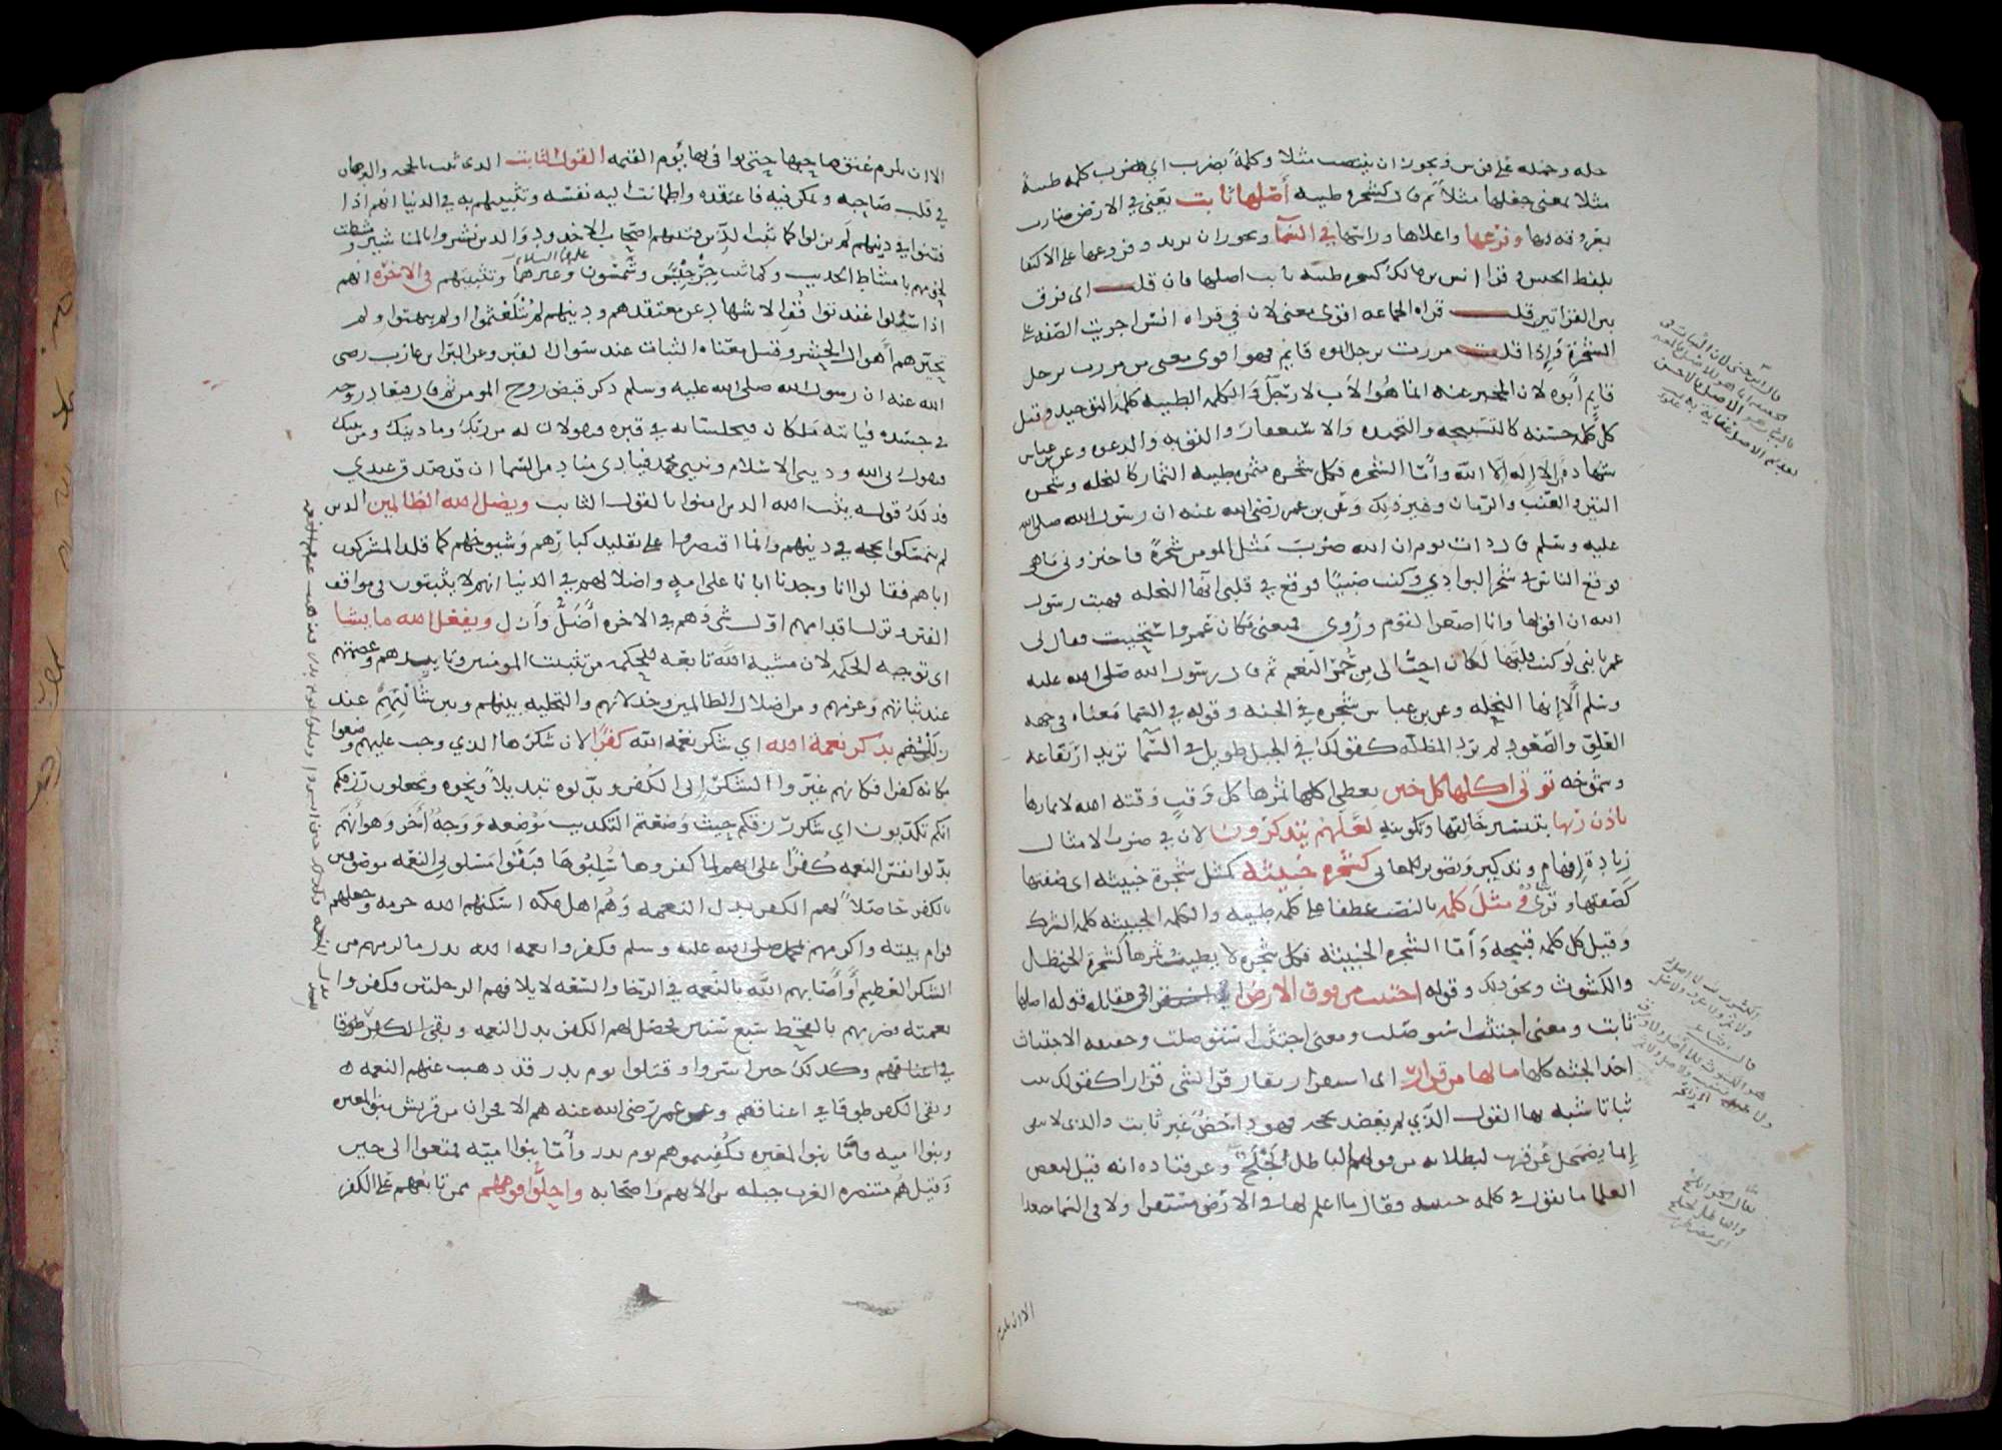 حله وحمله على فرس ويجوز ان ينتصب مثلا وكلمة بضرب اي ضرب كلمه طيبة
مثلا بمعنى جعلها مثلا ثم قال كشجره طيبه أصلها ثابت يعني في الارض ضارب
بعروقه فيها وفرعها واعلاها وراسها في السما ويجوز ان يريد وفروعها على الاكتفا
بلفظ الجنس وقرا انس بن مالك كشجره طيبه ثابت اصلها فان قلت اى فرق
بين القراتين قلت قراه الجماعه اقوى معنى لان في قراه انس اجريت الصفه على
الشجرة وإذا قلت مررت برجل ابوه قايم فهو اقوى معنى من مررت برجل
قايم أبوه لان المخبر عنه انما هو الأب لا رجل والكلمه الطيبه كلمة التوحيد وقيل
كل كلمه حسنه كالتسبيحه والتحميده والاستغفار والتوبه والدعوه وعن ابن عباس
شهادة أن لا إله إلا الله وأمّا الشجره فكل شجره مثمره طيبه الثمار كالنخله وشجره
التين والعنب والرمان وغير ذلك وعن بن عمر رضى الله عنه ان رسول الله صلى الله
عليه وسلم قال ذات يوم ان الله ضرب مثل المومن شجرةً فاخبروني ما هي
فوقع الناس في شجر البوادي وكنت صبيًا فوقع في قلبي انها النخله فهبت رسول
الله ان اقولها وانا اصغر القوم وروي فمنعني مكان عمر واستحييت فقال لي
عمر يا بنى لو كنت قلتها لكان احبّ الى من حمر النعم ثم قال رسول الله صلى الله عليه
وسلم ألا إنها النخله وعن بن عباس شجره في الجنه وقوله في السما معناه في جهه
العلو والصعود ولم يرد المظله كقولك في الجبل طويل في السّما تريد ارتفاعه
وشموخه توتى اكلها كل حين يعطى اكلها ثمرها كل وقتٍ وقته الله لاثمارها
باذن ربها بتيسير خالقها وتكوينه لعلهم يتذكرون لان في ضرب الامثال
زيادة إفهام وتذكير وتصوير للمعانى كشجره خبيثه كمثل شجرة خبيثه اى صفتها
كصفتها وقرئ ومثل كلمه بالنصب عطفا على كلمه طيبه والكلمه الخبيثه كلمة الشرك
وقيل كل كلمه قبيحه وأمّا الشجره الخبيثه فكل شجره لا يطيب ثمرها كشجرة الحنظل
والكشوث ونحو ذلك وقوله اجتثت من فوق الارض في مقابله قوله اصلها
ثابت ومعنى اجتثت استوصلت وحقيقه الاجتثاث
اخذ الجثه كلها مالها من قرار اى استقرار يقال قر الشى قرارا كقولك ثبت
ثباتا شبه بها القول الذي لم يعضد بحجه فهو داحض غير ثابت والذى لا يبقى
إنما يضمحل عن قريب لبطلانه من قولهم الباطل لجلج وعن قتاده انه قيل لبعض
العلما ما تقول في كلمه خبيثه فقال ما اعلم لها في الارض مستقرا ولا في السما مصعدا
الا ان تلزم
الا ان تلزم عنق صاحبها حتى يوافي بها يوم القيمه القول الثابت الذى ثبت بالحجه والبرهان
في قلب صاحبه وتمكن فيه فاعتقده واطمانت اليه نفسه وتثبيتهم به في الدنيا انهم اذا
فتنوا في دينهم لم يزلوا كما ثبت الذين فتنهم اصحاب الاخدود والذين نشروا بالمناشير ومشطت
لحومهم بامشاط الحديد وكما ثبت جرجيس وشمسون وغيرهما وتثبيتهم فى الاخره انهم
عليهما السلام
اذا سُئلوا عند تواقف الاشهاد عن معتقدهم ودينهم لم يتلعثموا ولم يبهتوا ولم
تحيرهم أهوال الحشر وقيل معناه الثبات عند سوال القبر وعن البرا بن عازب رضى
الله عنه ان رسول الله صلى الله عليه وسلم ذكر قبض روح المومن ثم قال فيعاد روحه
في جسده فياتيه ملكان فيجلسانه في قبره فيقولان له من ربك وما دينك ومن نبيك
فيقول ربى الله ودينى الاسلام ونبيى محمد فينادى مناد من السّما ان قد صدق عبدي
فذلك قوله يثبت الله الذين امنوا بالقول الثابت ويضل الله الظالمين الذين
لم يتمسكوا بحجه في دينهم وانما اقتصروا على تقليد كبارهم وشيوخهم كما قلد المشركون
اباهم فقالوا انا وجدنا ابانا على امه واضلالهم في الدنيا انهم لا يثبتون فى مواقف
الفتن وتزل اقدامهم اوّل شى وهم في الاخره أضلّ وأزل ويفعل الله ما يشا
اى توجبه الحكمه لان مشيه الله تابعه للحكمه من تثبيت المومنين وتاييدهم وعصمتهم
عند ثباتهم وعزمهم ومن اضلال الظالمين وخذلانهم والتخليه بينهم وبين شانهم عند
زللهم بدلوا نعمة الله اي شكر نعمة الله كفرًا لان شكرها الذي وجب عليهم وضعوا
مكانه كفرا فكانهم غيّروا الشكر إلى الكفر وبدّلوه تبديلاً ونحوه وتجعلون رزقكم
انكم تكذبون اي شكر رزقكم حيث وضعتم التكذيب موضعه ووجهٌ آخر وهو أنهم
بدّلوا نفس النعمه كُفرًا على انهم لما كفروها سُلِبُوهَا فبقوا مسلوبى النعمه موصوفين
بالكفر حاصلاً لهم الكفر بدل النعمه وهم اهل مكه اسكنهم الله حرمه وجعلهم
قوام بيته واكرمهم بمحمد صلى الله عليه وسلم فكفروا نعمه الله بدل ما لزمهم من
الشكر العظيم أو أصابهم الله بالنعمه في الرخا والسّعه لايلافهم الرحلتين فكفروا
نعمته فضربهم بالقحط سبع سنين فحصل لهم الكفر بدل النعمه وبقى الكفر طوقا
في اعناقهم وكذلك حين اسروا وقتلوا يوم بدر قد ذهب عنهم النعمه
وبقى الكفر طوقا في اعناقهم وعن عمر رضى الله عنه هم الافجران من قريش بنو المغيره
وبنوا اميه فامّا بنوا المغيره فكفيتموهم يوم بدر وأمّا بنوا اميّه فمتعوا الى حين
وقيل هم متنصره العرب جبله بن الايهم واصحابه واحلوا قومهم ممن تابعهم على الكفر